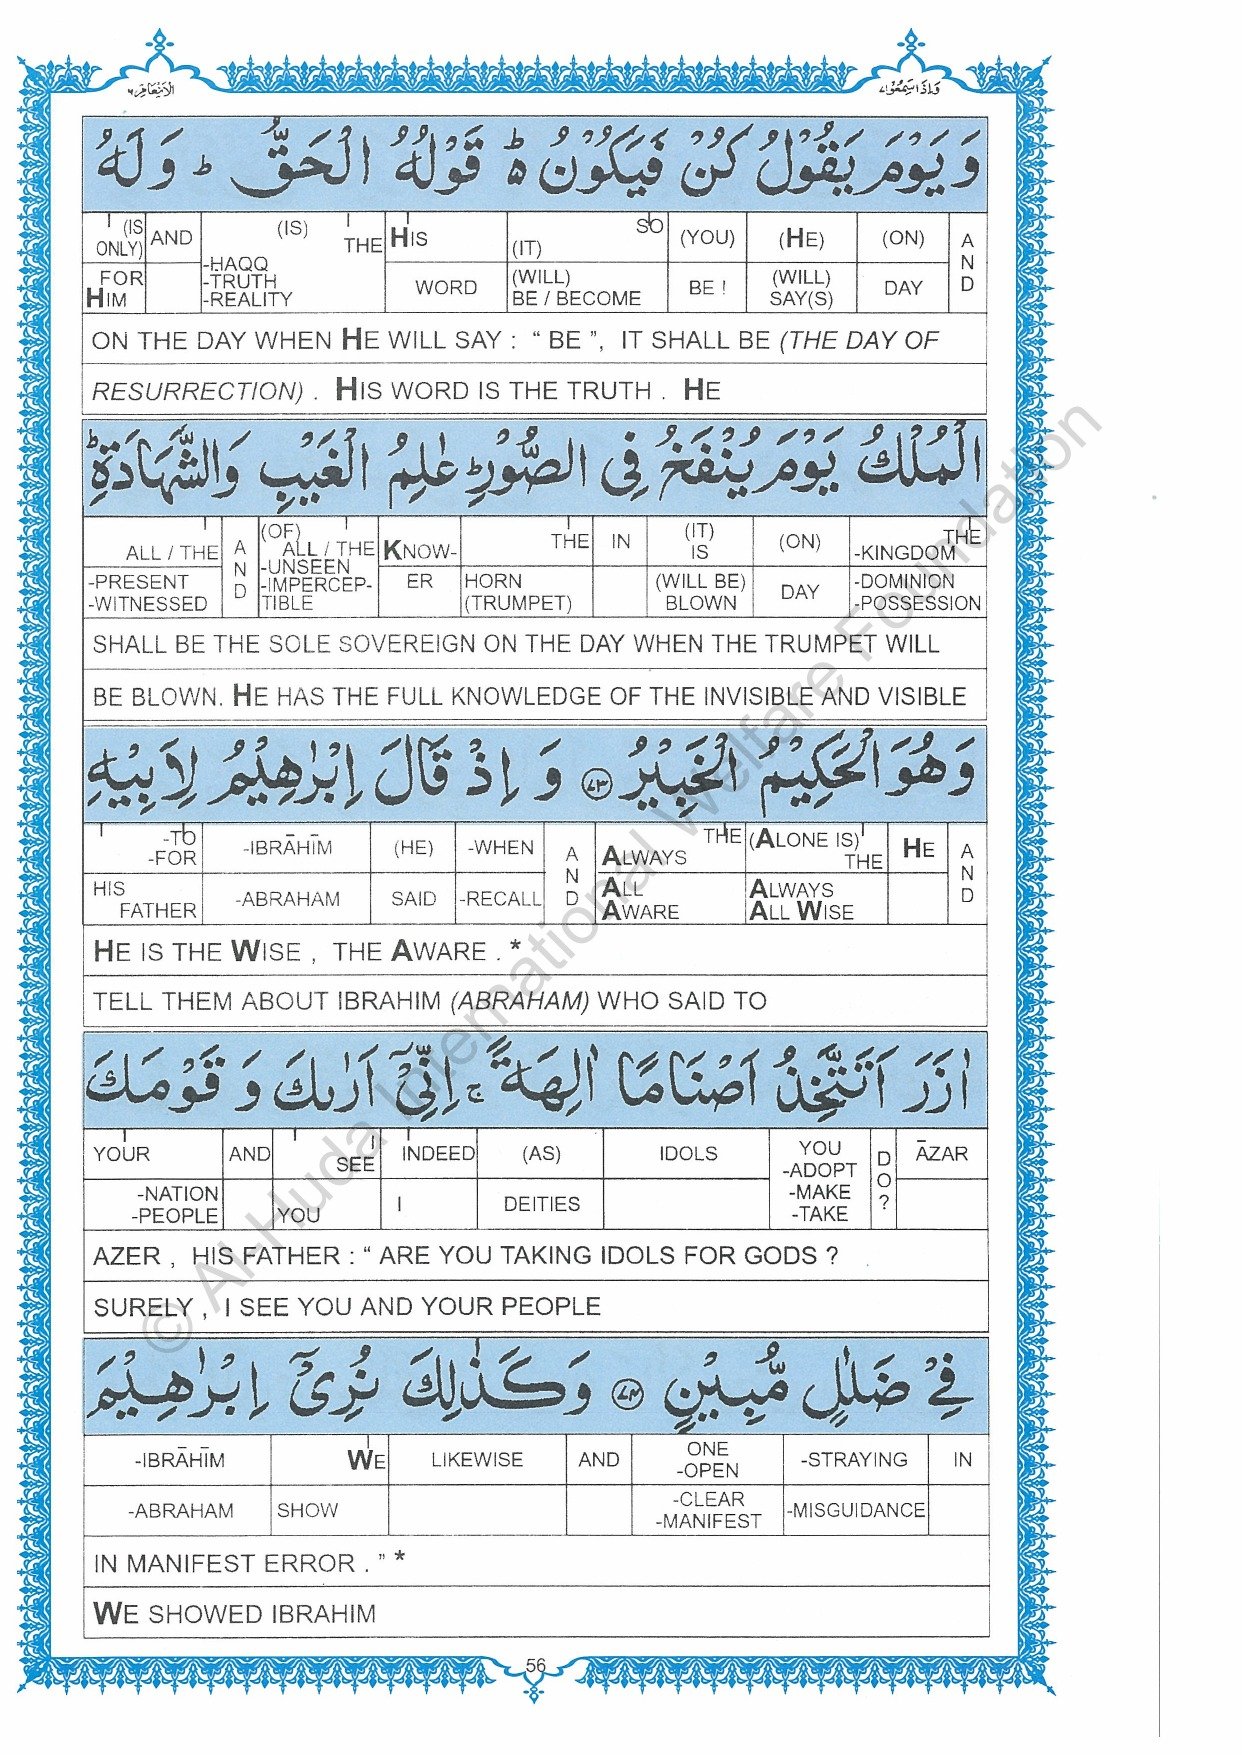 الانعام ٦
واذا سمعوا ٧
وَ يَوْمَ يَقُوْلُ كُنْ فَيَكُوْنُ ؕ قَوْلُهُ الْحَقُّ ؕ وَ لَهُ
(IS ONLY) AND (IS) THE HIS (IT) SO (YOU) (HE) (ON) AND
FOR HIM -ḤAQQ -TRUTH -REALITY WORD (WILL) BE / BECOME BE ! (WILL) SAY(S) DAY
ON THE DAY WHEN HE WILL SAY : “ BE ”, IT SHALL BE (THE DAY OF
RESURRECTION) . HIS WORD IS THE TRUTH . HE
الْمُلْكُ يَوْمَ يُنْفَخُ فِي الصُّوْرِ ؕ عٰلِمُ الْغَيْبِ وَالشَّهَادَةِ ؕ
ALL / THE AND (OF) ALL / THE KNOW- THE IN (IT) IS (ON) THE -KINGDOM
-PRESENT -WITNESSED -UNSEEN -IMPERCEP- TIBLE ER HORN (TRUMPET) (WILL BE) BLOWN DAY -DOMINION -POSSESSION
SHALL BE THE SOLE SOVEREIGN ON THE DAY WHEN THE TRUMPET WILL
BE BLOWN. HE HAS THE FULL KNOWLEDGE OF THE INVISIBLE AND VISIBLE
وَ هُوَ الْحَكِيْمُ الْخَبِيْرُ ﴿٧٣﴾ وَ اِذْ قَالَ اِبْرٰهِيْمُ لِاَبِيْهِ
-TO -FOR -IBRĀHĪM (HE) -WHEN AND THE ALWAYS (ALONE IS) THE HE AND
HIS FATHER -ABRAHAM SAID -RECALL ALL AWARE ALWAYS ALL WISE
HE IS THE WISE , THE AWARE . *
TELL THEM ABOUT IBRAHIM (ABRAHAM) WHO SAID TO
اٰزَرَ اَتَتَّخِذُ اَصْنَامًا اٰلِهَةً ۚ اِنِّيْۤ اَرٰىكَ وَ قَوْمَكَ
YOUR AND SEE INDEED (AS) IDOLS YOU -ADOPT DO? ĀZAR
-NATION -PEOPLE YOU I DEITIES -MAKE -TAKE
AZER , HIS FATHER : “ ARE YOU TAKING IDOLS FOR GODS ?
SURELY , I SEE YOU AND YOUR PEOPLE
فِيْ ضَلٰلٍ مُّبِيْنٍ ﴿٧٤﴾ وَ كَذٰلِكَ نُرِيْۤ اِبْرٰهِيْمَ
-IBRĀHĪM WE LIKEWISE AND ONE -OPEN -STRAYING IN
-ABRAHAM SHOW -CLEAR -MANIFEST -MISGUIDANCE
IN MANIFEST ERROR . ” *
WE SHOWED IBRAHIM
56
© Al-Huda International Welfare Foundation